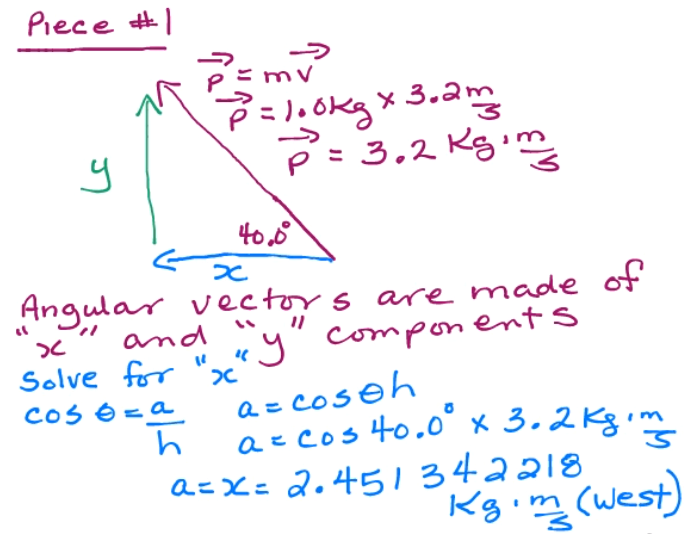 Piece #1
p⃗ = mv⃗
p⃗ = 1.0kg × 3.2 m/s
p⃗ = 3.2 Kg·m/s
y
40.0°
x
Angular vectors are made of
"x" and "y" components
Solve for "x"
cos θ = a/h a = cosθh
a = cos 40.0° × 3.2 Kg·m/s
a = x = 2.451342218
Kg·m/s (west)